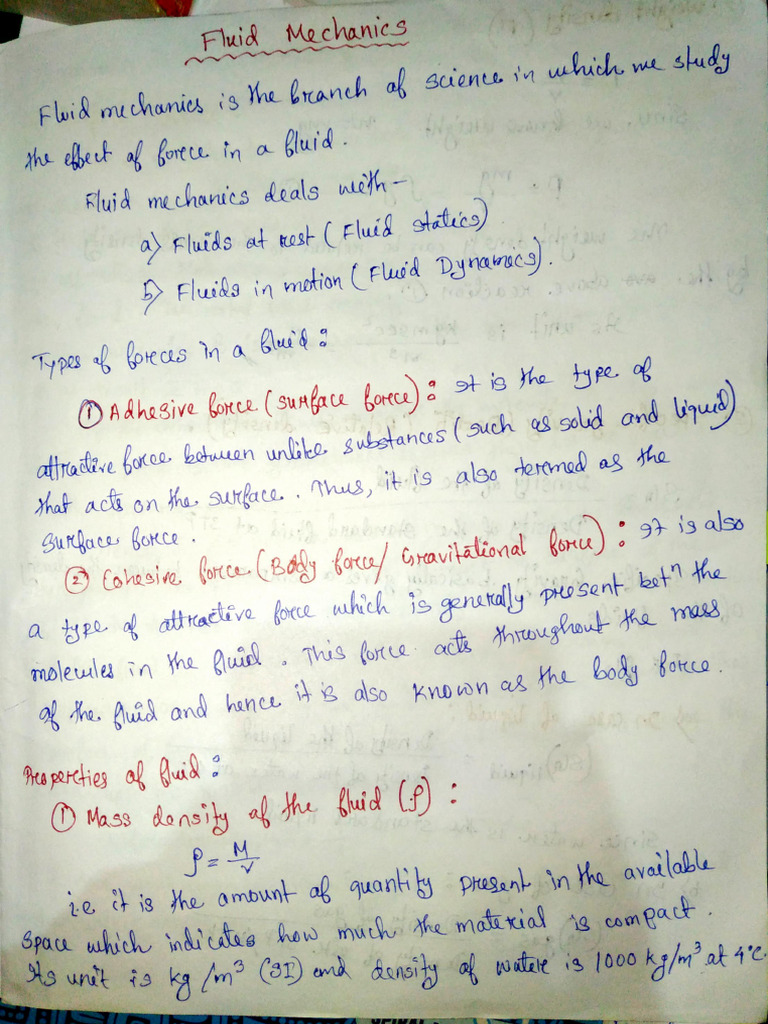 Fluid Mechanics
Fluid mechanics is the branch of science in which we study
the effect of force in a fluid.
Fluid mechanics deals with -
a) Fluids at rest (Fluid statics)
b) Fluids in motion (Fluid Dynamics).
Types of forces in a fluid :
① Adhesive force (surface force) : It is the type of
attractive force between unlike substances (such as solid and liquid)
that acts on the surface. Thus, it is also termed as the
surface force.
② Cohesive force (Body force/ Gravitational force) : It is also
a type of attractive force which is generally present betⁿ the
molecules in the fluid. This force acts throughout the mass
of the fluid and hence it is also known as the body force.
Properties of fluid :
① Mass density of the fluid (ρ) :
ρ = M/V
i.e it is the amount of quantity present in the available
space which indicates how much the material is compact.
Its unit is kg/m³ (SI) and density of water is 1000 kg/m³ at 4°C.